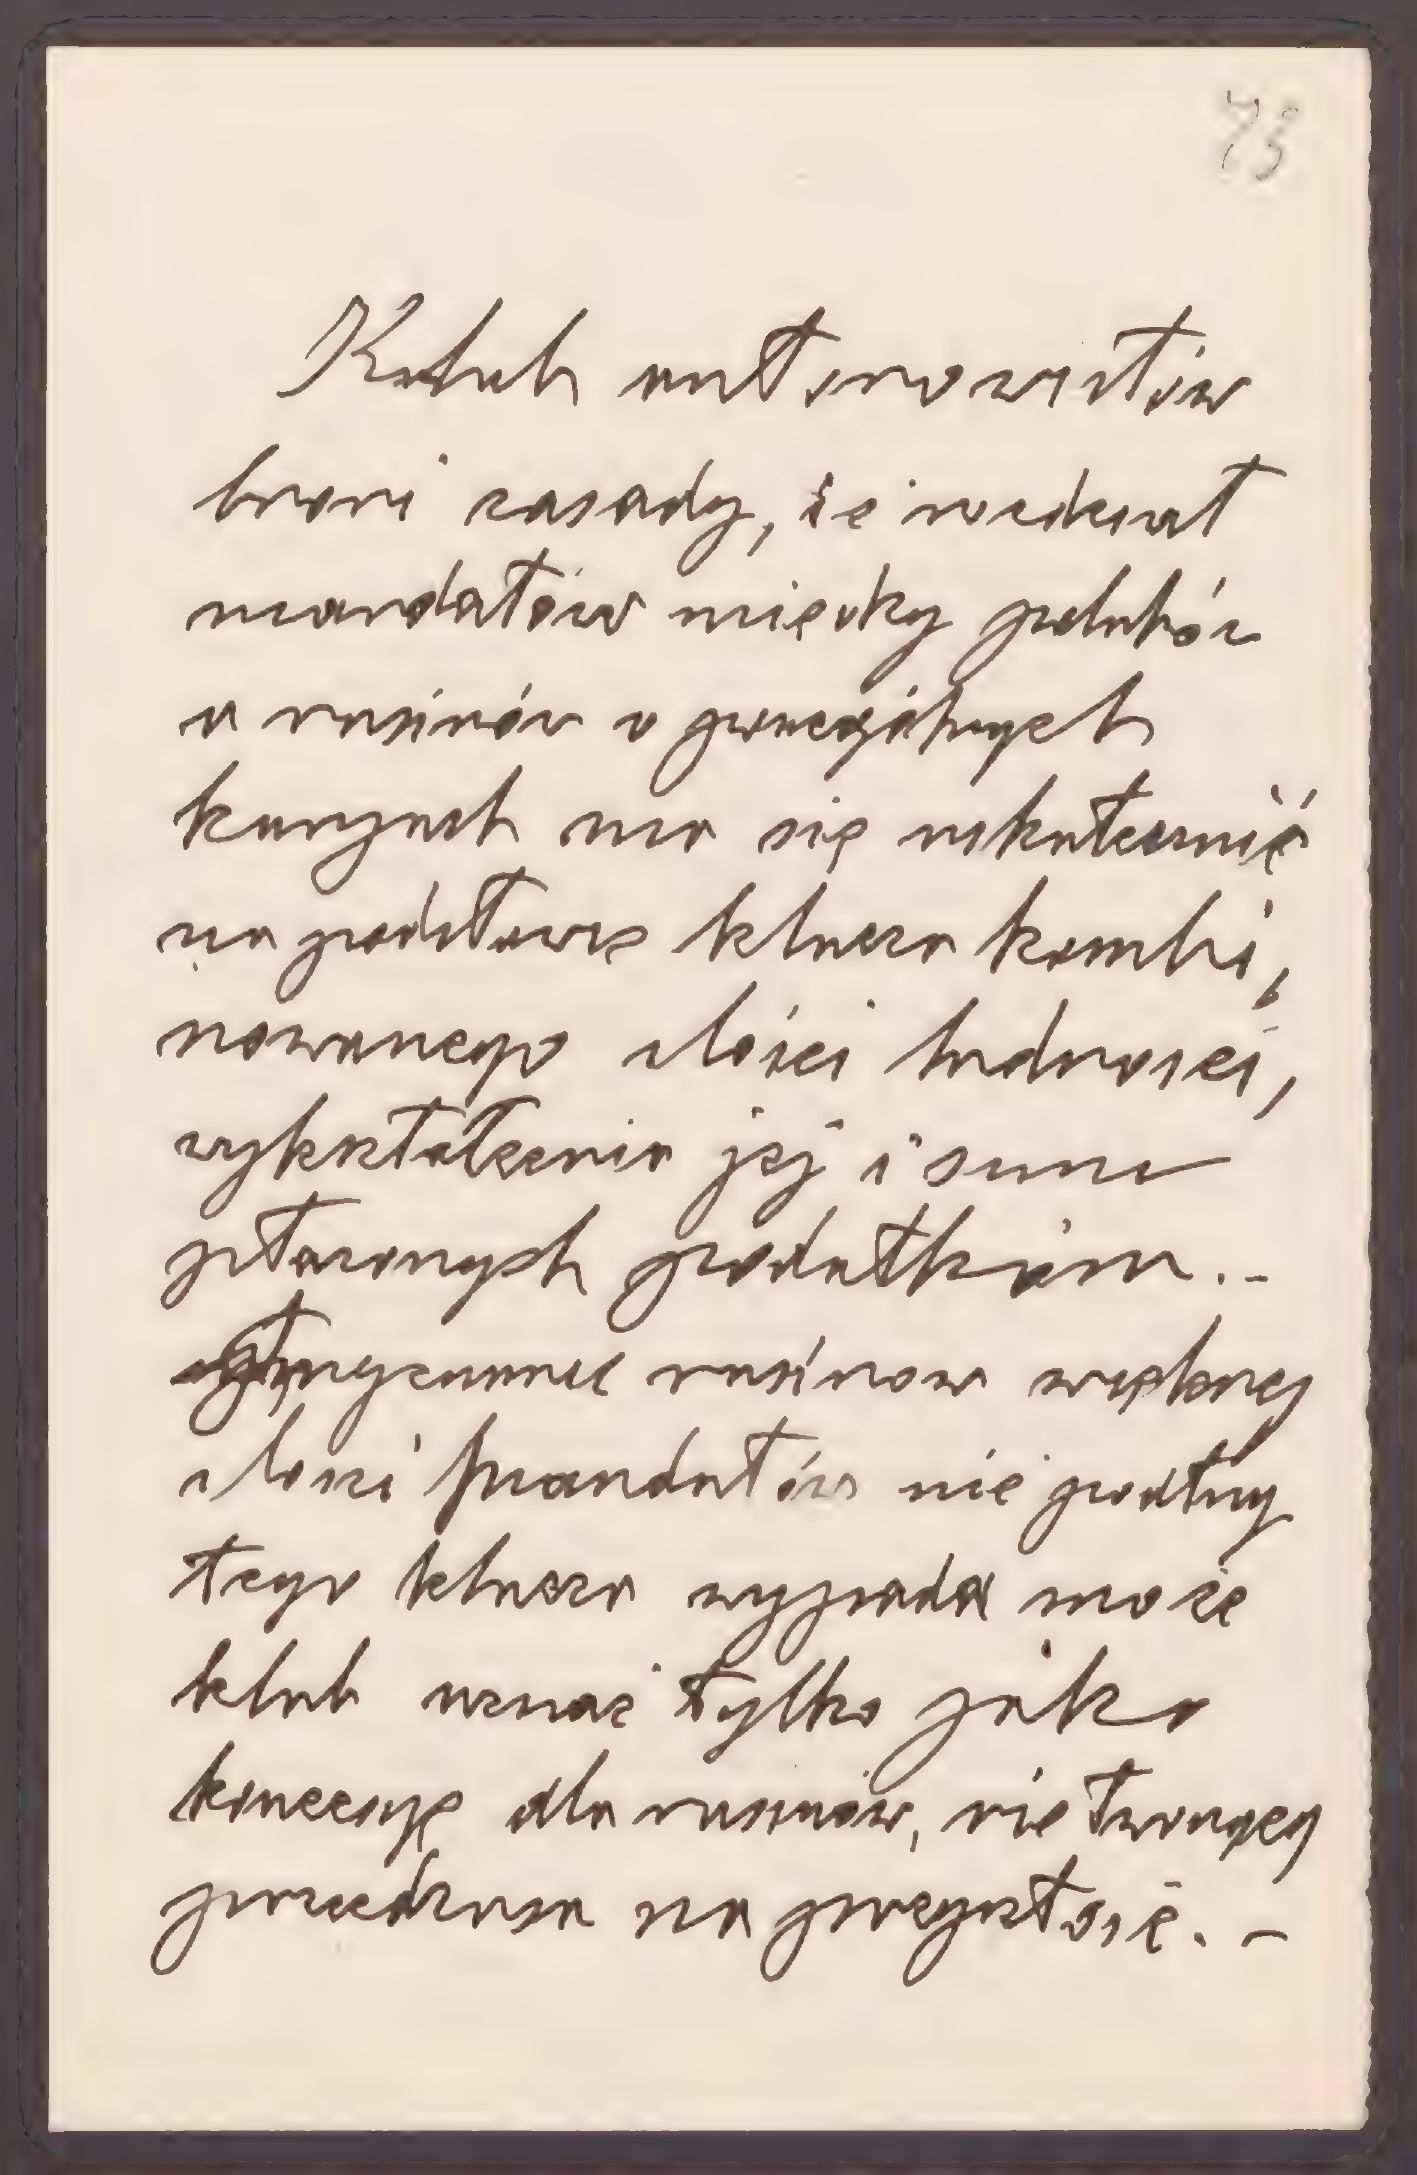 73
Klub autonomistów
broni zasady, że rozdział
mandatów między polaków
a rusinów w poszczególnych
kuryach ma się uskutecznić
na podstawie klucza kombi,
nowanego ilości ludności,
wykształcenia jej i sumy
płaconych podatków. -
rusinów większej
ilości mandatów niż podług
tego klucza wypada może
klub uznać tylko jako
koncesyę dla rusinów, nie tworzącą
precedensu na przyszłość. -